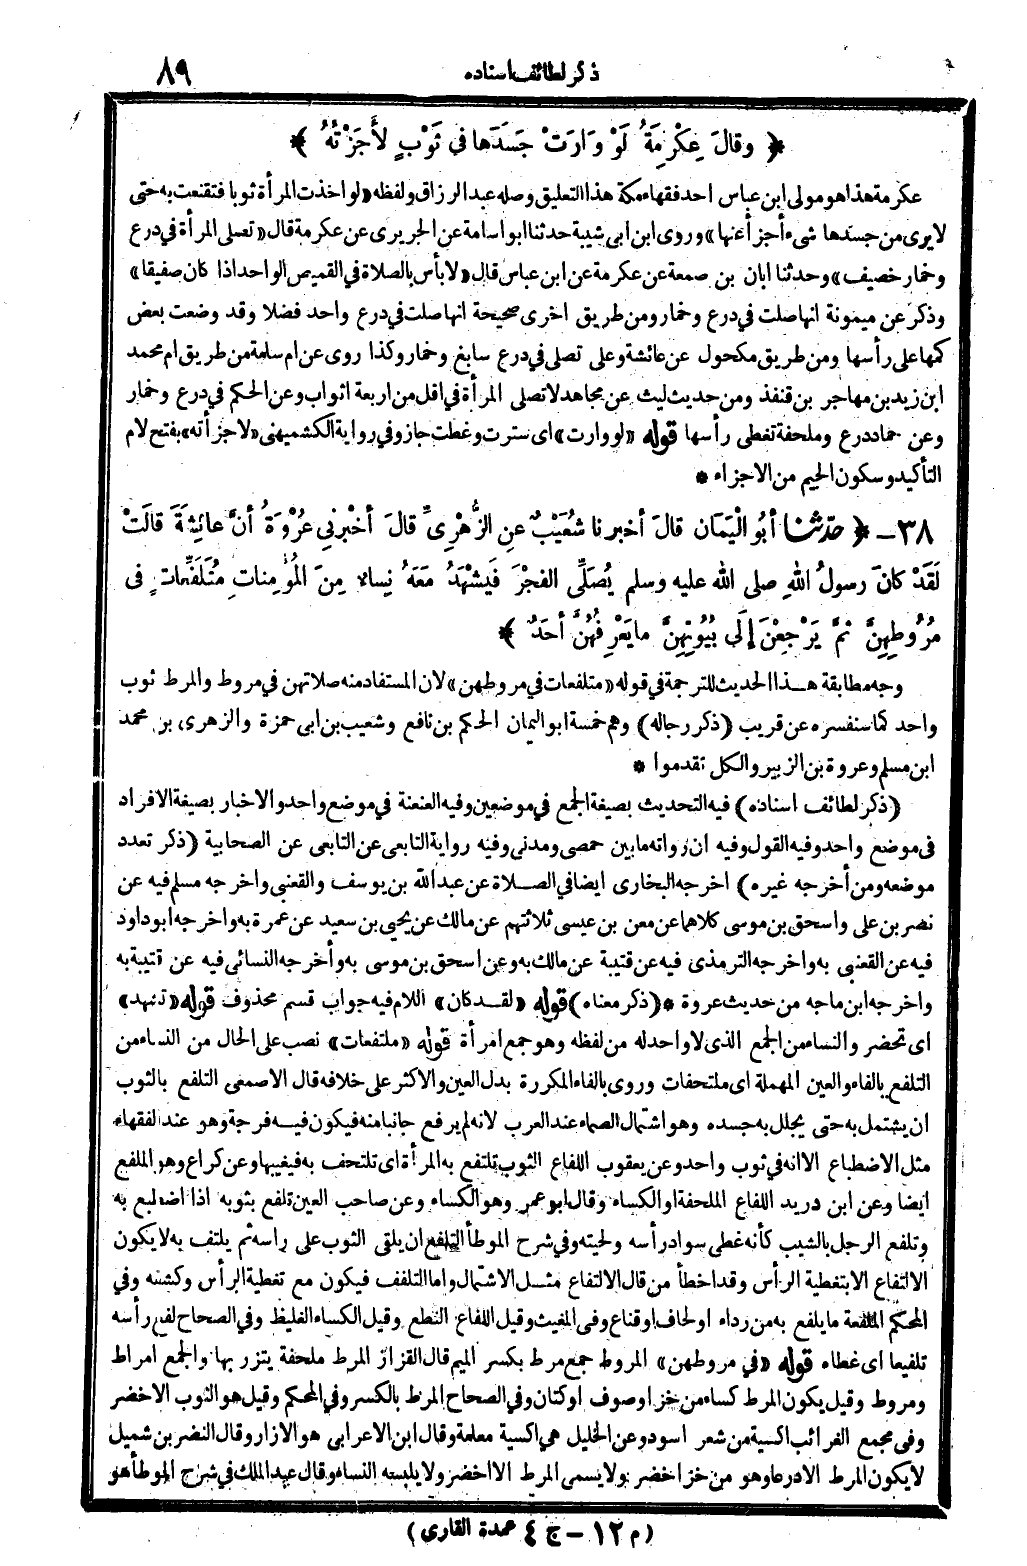 ذكر لطائف اسناده ٨٩
﴿ وقالَ عِكْرِمَةُ لَوْ وَارَتْ جَسَدَها في ثَوْبٍ لأَجَزْتُهُ ﴾
عكرمة هذا هو مولى ابن عباس احد فقهاء مكة هذا التعليق وصله عبد الرزاق ولفظه «لو اخذت المرأة ثوبا فتقنعت به حتى
لا يرى من جسدها شىء أجزأ عنها» وروى ابن ابى شيبة حدثنا ابو اسامة عن الجريرى عن عكرمة قال «تصلى المرأة في درع
وخمار خصيف» وحدثنا ابان بن صمعة عن عكرمة عن ابن عباس قال «لا بأس بالصلاة في القميص الواحد اذا كان صفيقا»
وذكر عن ميمونة انها صلت في درع وخمار ومن طريق اخرى صحيحة انها صلت في درع واحد فضلا وقد وضعت بعض
كمها على رأسها ومن طريق مكحول عن عائشة وعلى تصلى في درع سابغ وخمار وكذا روى عن ام سلمة من طريق ام محمد
ابن زيد بن مهاجر بن قنفذ ومن حديث ليث عن مجاهد لا تصلى المرأة في اقل من اربعة اثواب وعن الحكم في درع وخمار
وعن حماد درع وملحفة تغطى رأسها قوله «لو وارت» اى سترت وغطت جاز وفي رواية الكشميهنى «لاجزأته» بفتح لام
التأكيد وسكون الجيم من الاجزاء *
٣٨ - ﴿ حدّثنا أبُو الْيَمَانِ قالَ أخبرنا شُعَيْبٌ عنِ الزُّهْرِىِّ قالَ أخْبرنِي عُرْوَةُ أنَّ عائِشَةَ قالَتْ
لَقَدْ كانَ رسولُ اللهِ صلى الله عليه وسلم يُصَلِّى الفجْرَ فَيَشْهَدُ مَعَهُ نِساءٌ مِنَ المُؤْمِناتِ مُتَلَفِّعاتٍ فى
مُرُوطِهِنَّ ثمَّ يَرْجِعْنَ إلَى بُيُوتِهِنَّ ما يَعْرِفُهُنَّ أحَدٌ ﴾
وجه مطابقة هذا الحديث للترجمة في قوله «متلفعات في مروطهن» لان المستفاد منه صلاتهن في مروط والمرط ثوب
واحد كما سنفسره عن قريب (ذكر رجاله) وهم خمسة ابو اليمان الحكم بن نافع وشعيب بن ابى حمزة والزهرى بن محمد
ابن مسلم وعروة بن الزبير والكل تقدموا *
(ذكر لطائف اسناده) فيه التحديث بصيغة الجمع في موضعين وفيه العنعنة في موضع واحد والاخبار بصيغة الافراد
فى موضع واحد وفيه القول وفيه ان رواته ما بين حمصى ومدنى وفيه رواية التابعى عن التابعى عن الصحابية (ذكر تعدد
موضعه ومن أخرجه غيره) اخرجه البخارى ايضا في الصلاة عن عبد الله بن يوسف والقعنبى واخرجه مسلم فيه عن
نصر بن على واسحق بن موسى كلاهما عن معن بن عيسى ثلاثتهم عن مالك عن يحيى بن سعيد عن عمرة به واخرجه ابو داود
فيه عن القعنبى به واخرجه الترمذى فيه عن قتيبة عن مالك به وعن اسحق بن موسى به وأخرجه النسائى فيه عن قتيبة به
واخرجه ابن ماجه من حديث عروة * (ذكر معناه) قوله «لقد كان» اللام فيه جواب قسم محذوف قوله «تشهد»
اى تحضر والنساء من الجمع الذى لا واحد له من لفظه وهو جمع امرأة قوله «ملتفعات» نصب على الحال من النساء من
التلفع بالفاء والعين المهملة اى ملتحفات وروى بالفاء المكررة بدل العين والاكثر على خلافه قال الاصمعى التلفع بالثوب
ان يشتمل به حتى يجلل به جسده وهو اشتمال الصماء عند العرب لانه لم يرفع جانبا منه فيكون فيه فرجة وهو عند الفقهاء
مثل الاضطباع الا انه في ثوب واحد وعن يعقوب اللفاع الثوب تلتفع به المرأة اى تلتحف به فيغيبها وعن كراع وهو الملفع
ايضا وعن ابن دريد اللفاع الملحفة او الكساء وقال ابو عمر وهو الكساء وعن صاحب العين تلفع بثوبه اذا اضطبع به
وتلفع الرجل بالشيب كأنه غطى سواد رأسه ولحيته وفي شرح الموطأ التلفع ان يلقى الثوب على رأسه ثم يلتف به لا يكون
الالتفاع الا بتغطية الرأس وقد اخطأ من قال الالتفاع مثل الاشتمال واما التلفف فيكون مع تغطية الرأس وكشفه وفي
المحكم الملفعة ما يلفع به من رداء او لحاف او قناع وفى المغيث وقيل اللفاع النطع وقيل الكساء الغليظ وفي الصحاح لفع رأسه
تلفيعا اى غطاه قوله «في مروطهن» المروط جمع مرط بكسر الميم قال القزاز المرط ملحفة يتزر بها والجمع امراط
ومروط وقيل يكون المرط كساء من خز او صوف او كتان وفي الصحاح المرط بالكسر وفي المحكم وقيل هو الثوب الاخضر
وفى مجمع الغرائب اكسية من شعر اسود وعن الخليل هي اكسية معلمة وقال ابن الاعرابى هو الازار وقال النضر بن شميل
لا يكون المرط الا درعا وهو من خز اخضر ولا يسمى المرط الا اخضر ولا يلبسه النساء وقال عبد الملك في شرح الموطأ هو
(م ١٢ - ج ٤ عمدة القارى)